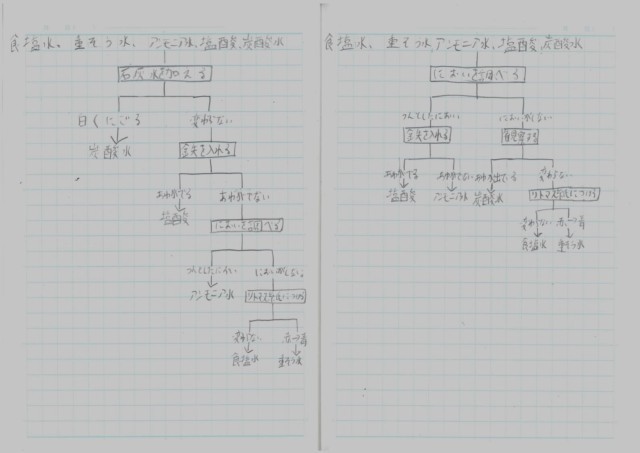 食塩水、重そう水、アンモニア水、塩酸、炭酸水
石灰水を加える
白くにごる
変わらない
炭酸水
金ぞくを入れる
あわがでる
あわがでない
塩酸
においを調べる
つんとしたにおい
においがしない。
アンモニア水
リトマス紙につける
変わらない
赤→青
食塩水
重そう水
食塩水、重そう水、アンモニア水、塩酸、炭酸水
においを調べる
つんとしたにおい
においがしない
を入れる
あわがでる
あわがでない
あわが出ている
変わらない
塩酸
アンモニア水
炭酸水
リトマス紙につける
変わらない
赤→青
食塩水
重そう水